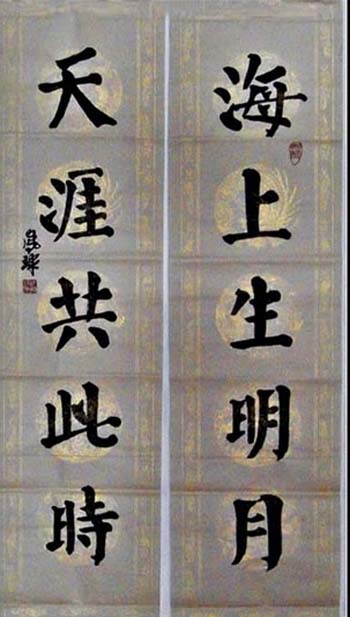 海上生明月
天涯共此時